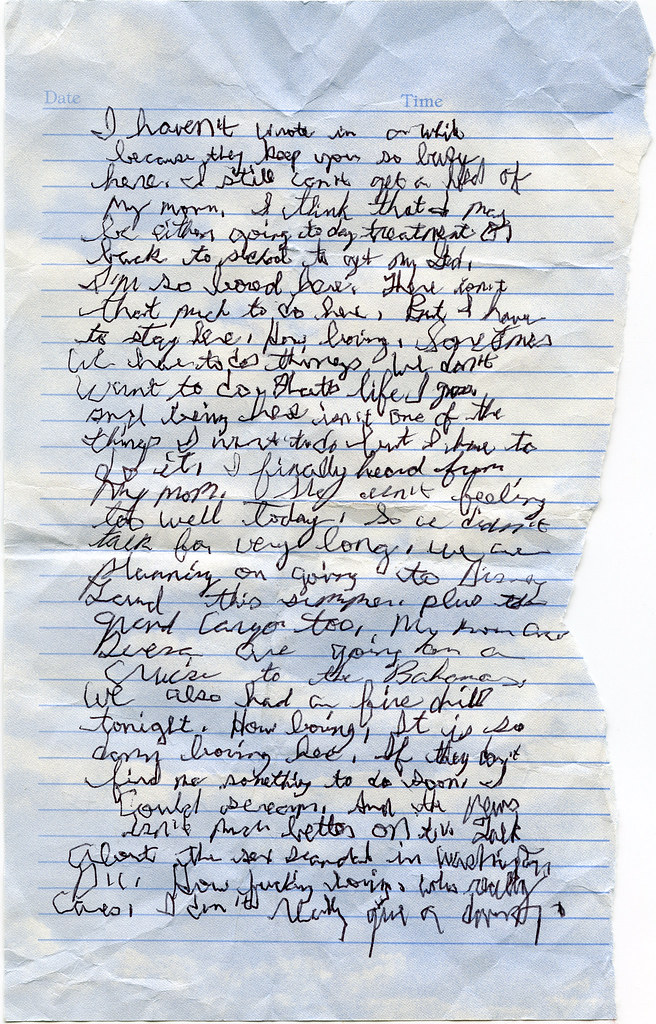 Date Time
I haven't wrote in a while
because they keep you so busy
here. I still can't get a hold of
my mom. I think that I may
be either going to day treatment or
back to school to get my Ged.
I'm so bored here. There isn't
that much to do here. But I have
to stay here. How boring. Sometimes
we have to do things we don't
want to do. Thats life I guess,
and being here isn't one of the
things I want to do but I have to
do it. I finally heard from
my mom. She isn't feeling
too well today, so we didn't
talk for very long. we are
planning on going to Disney
Land this summer. plus the
grand canyon too. My mom and
Teresa are going on a
Cruise to the Bahamas.
We also had a fire drill
tonight. How boring, It is so
damn boring here. If they don't
find me something to do soon, I
Could scream. And the news
isn't much better on t.v. Talk
About the sex scandal in Washington,
D.C. How fucking boring. who really
Cares. I don't really give a damn.